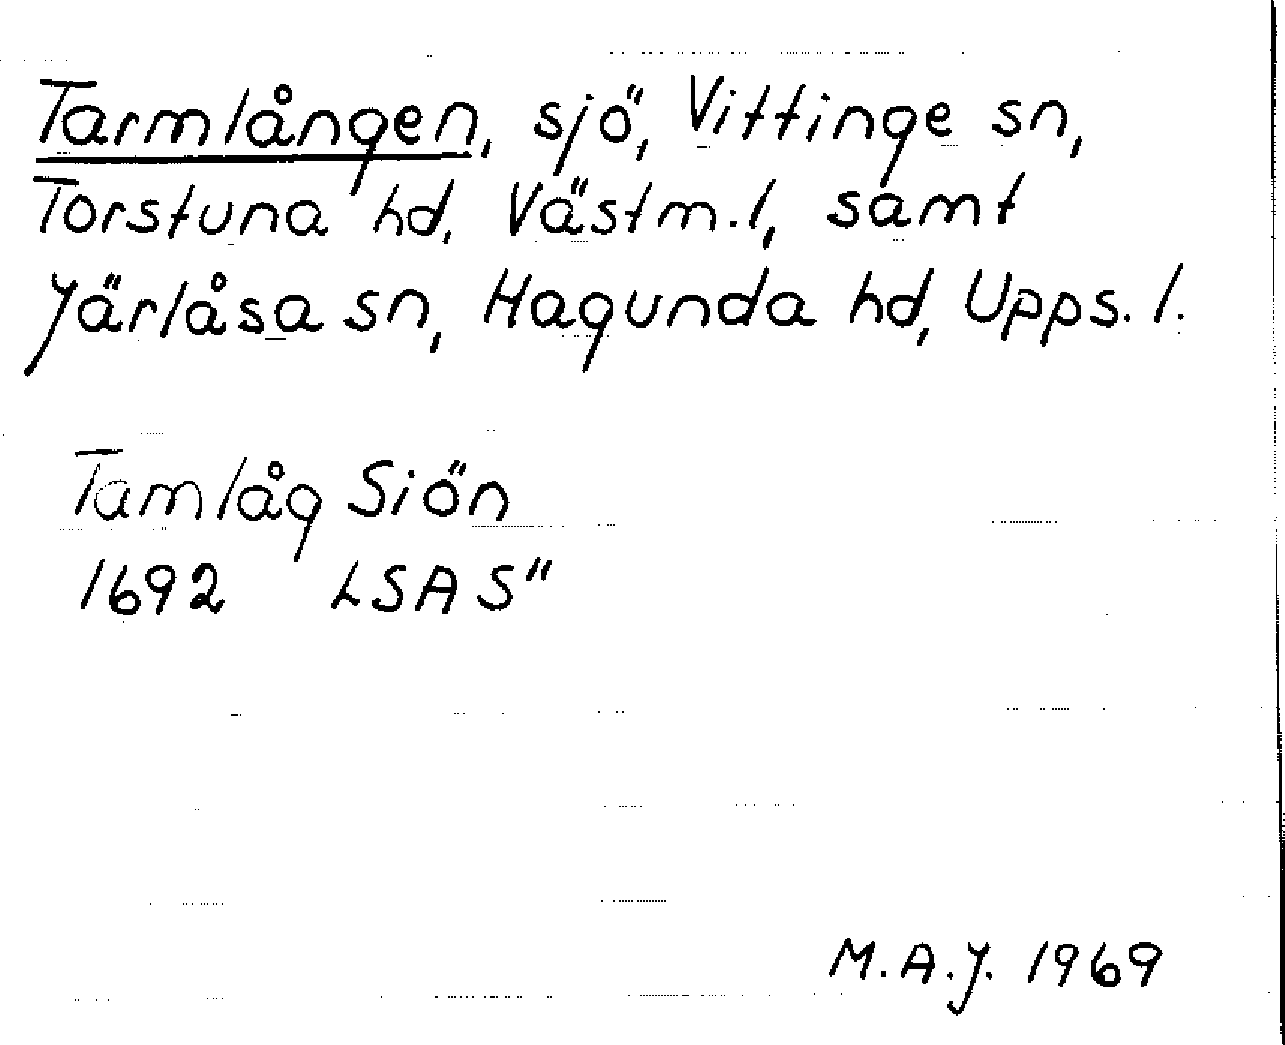 Tarmlången, sjö, Vittinge sn,
Torstuna hd, Västm.l, samt
Järlåsa sn, Hagunda hd, Upps. l.
Tamlåg Siön
1692 LSA S"
M.A.J. 1969